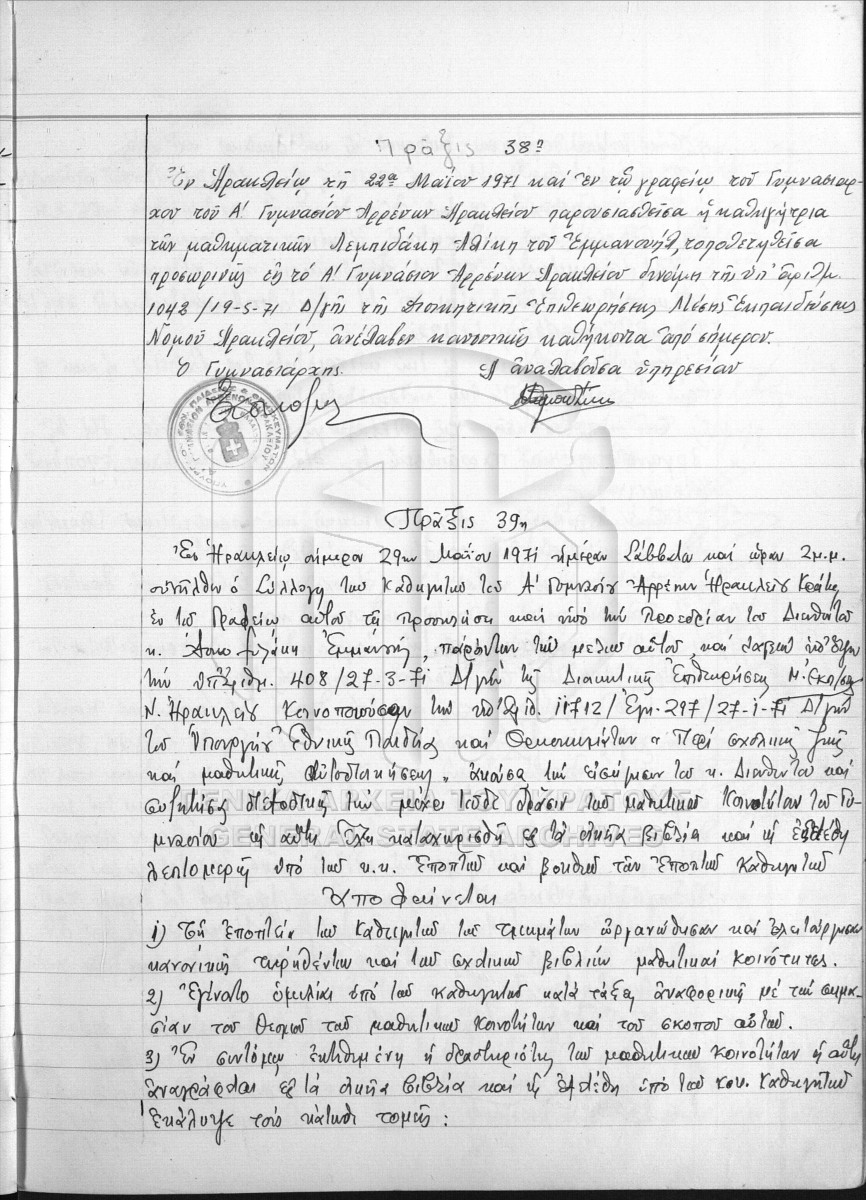 Πρᾶξις 38η
Ἐν Ἡρακλείῳ τῇ 22ᾳ Μαΐου 1971 καί ἐν τῷ γραφείῳ τοῦ Γυμνασιάρ-
χου τοῦ Α' Γυμνασίου Ἀρρένων Ἡρακλείου παρουσιασθεῖσα ἡ καθηγήτρια
τῶν μαθηματικῶν Λεμπιδάκη Ἀλίκη τοῦ Ἐμμανουήλ, τοποθετηθεῖσα
προσωρινῶς εἰς τό Α' Γυμνάσιον Ἀρρένων Ἡρακλείου δυνάμει τῆς ὑπ' ἀριθμ.
1042/19-5-71 Δ/γῆς τῆς Διοικητικῆς Ἐπιθεωρήσεως Μέσης Ἐκπαιδεύσεως
Νομοῦ Ἡρακλείου, ἀνέλαβεν κανονικῶς καθήκοντα ἀπό σήμερον.
Ὁ Γυμνασιάρχης Ἡ ἀναλαβοῦσα ὑπηρεσίαν
Πρᾶξις 39η
Ἐν Ἡρακλείῳ σήμερον 29ην Μαΐου 1971 ἡμέραν Σάββατο καί ὥραν 2 μ.μ.
συνῆλθεν ὁ Σύλλογος των Καθηγητῶν τοῦ Α' Γυμνασίου Ἀρρένων Ἡρακλείου
ἐν τῷ Γραφείῳ αὐτοῦ τῇ προσκλήσει καί ὑπό τήν Προεδρίαν του Διευθυντοῦ
κ. Ἐμμανουήλ, παρόντων τῶν μελῶν αὐτοῦ, καί λαβών ὑπ' ὄψιν
τήν ὑπ' ἀριθμ. 408/27-3-71 Δ/γήν τῆς Διοικητικῆς Ἐπιθεωρήσεως Μ. Ἐκπ/σεως
Ν. Ἡρακλείου Κοινοποιοῦσαν τήν ὑπ' ἀριθ. 11712/Ἐγκ. 297/27-1-71 Δ/γήν
τοῦ Ὑπουργείου Ἐθνικῆς Παιδείας καί Θρησκευμάτων "Περί σχολικῆς ζωῆς
καί μαθητικῆς αὐτοδιοικήσεως", ἀκούσας τήν εἰσήγησιν του κ. Διευθυντοῦ καί
συζητήσας διεξοδικῶς τήν μέχρι τοῦδε δρᾶσιν τῶν μαθητικῶν Κοινοτήτων τοῦ Γυ-
μνασίου ὡς αὕτη ἔχει καταχωρισθῆ εἰς τά οἰκεῖα βιβλία καί ὡς ἐξετέθη
λεπτομερῶς ὑπό των κ.κ. Ἐποπτῶν καί βοηθῶν τῶν Ἐποπτῶν Καθηγητῶν
Ἀποφαίνεται
1) Τῇ ἐποπτείᾳ των Καθηγητῶν των τμημάτων ὠργανώθησαν καί ἐλειτούργησαν
κανονικῶς τηρηθέντων καί των σχετικῶν βιβλίων μαθητικαί κοινότητες.
2) Ἐγένοντο ὁμιλίαι ὑπό των καθηγητῶν κατά τάξεις ἀναφορικῶς μέ τήν σημα-
σίαν τοῦ θεσμοῦ των μαθητικῶν Κοινοτήτων καί τοῦ σκοποῦ αὐτῶν.
3) Ἐν συντόμῳ ἐκτιθεμένη ἡ δραστηριότης των μαθητικῶν κοινοτήτων ὡς αὕτη
ἀναγράφεται εἰς τά οἰκεῖα βιβλία καί ὡς ἐξετέθη ὑπό των κυν. Καθηγητῶν
ἐκάλυψε τούς κάτωθι τομεῖς:
ΓΕΝΙΚΑ ΑΡΧΕΙΑ ΤΟΥ ΚΡΑΤΟΥΣ
GENERAL STATE ARCHIVES